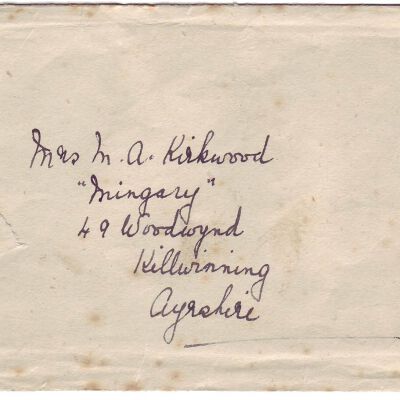 Mrs M. A. Kirkwood
"Mingary"
49 Woodwynd
Killwinning
Ayrshire